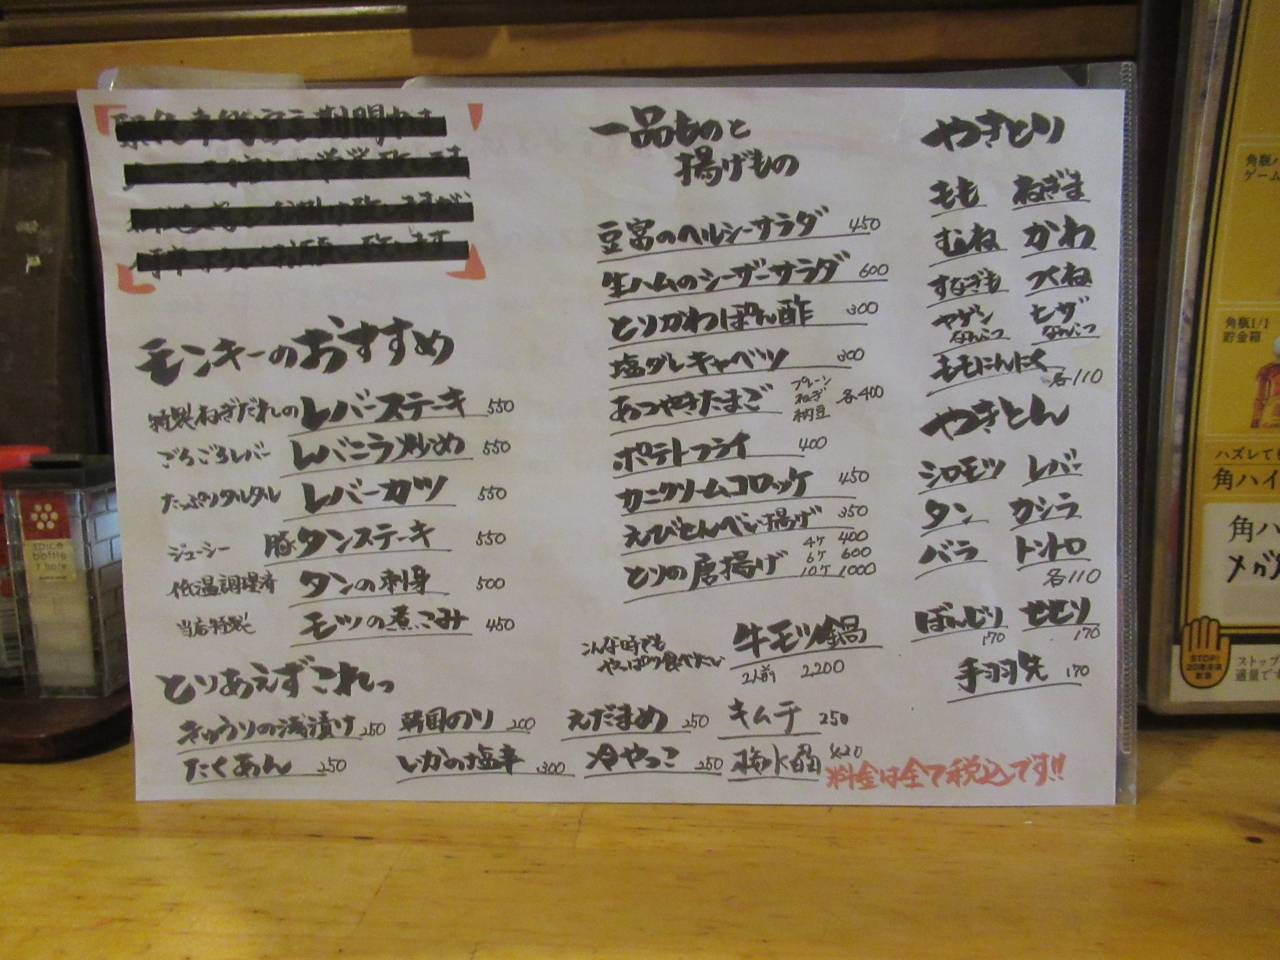 モンキーのおすすめ
特製ねぎだれのレバーステーキ 550
ごろごろレバー レバニラ炒め 550
たっぷりタルタル レバーカツ 550
ジューシー 豚タンステーキ 550
低温調理済 タンの刺身 500
当店特製 モツの煮こみ 450
とりあえずこれっ
きゅうりの浅漬け 250 韓国のり 200 えだまめ 250 キムチ 250
たくあん 250 いかの塩辛 300 冷やっこ 250 420
一品ものと
揚げもの
豆富のヘルシーサラダ 450
生ハムのシーザーサラダ 600
とりかわぽん酢 300
塩ダレキャベツ 300
あつやきたまご プレーン ねぎ 納豆 各400
ポテトフライ 400
カニクリームコロッケ 450
えびせんべい揚げ 350
とりの唐揚げ 4ケ 400
6ケ 600
10ケ 1000
こんな時でも
やっぱり食べたい
牛モツ鍋
2人前 2,200
やきとり
もも ねぎま
むね かわ
すなぎも つくね
ヤゲンなんこつ ヒザなんこつ
ももにんにく
各110
やきとん
シロモツ レバー
タン カシラ
バラ トントロ
各110
ぼんじり 170 せせり 170
手羽先 170
料金は全て税込です!!
spice
bottle
1 hole
角瓶
ゲーム
角瓶1/1
貯金箱
ハズレても
角ハイ
角ハ
メガ
STOP!
ストップ
適量で